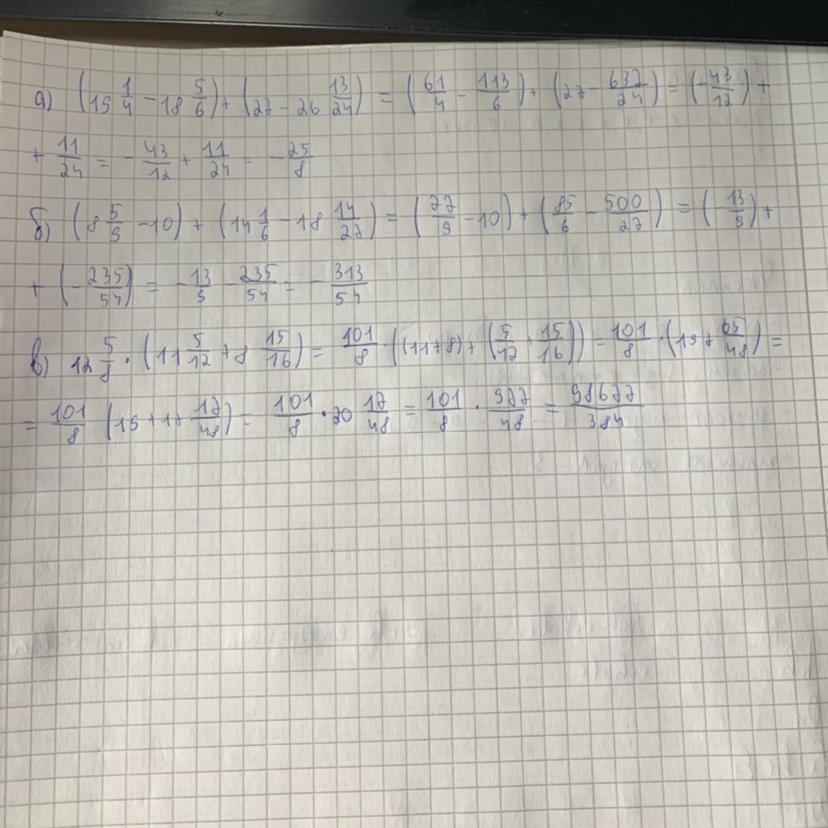 а) (15 1/4 - 18 5/6) + (27 - 26 13/24) = (61/4 - 113/6) + (27 - 637/24) = (-43/12) +
+ 11/24 = -43/12 + 11/24 = -25/8
б) (8 5/9 - 10) + (14 1/6 - 18 14/27) = (77/9 - 10) + (85/6 - 500/27) = (-13/9) +
+ (-235/54) = -13/9 - 235/54 = -313/54
в) 12 5/8 · (11 5/12 + 8 15/16) = 101/8 · ((11+8) + (5/12 + 15/16)) = 101/8 · (19 + 65/48) =
= 101/8 (19 + 1 17/48) = 101/8 · 20 17/48 = 101/8 · 977/48 = 98677/384